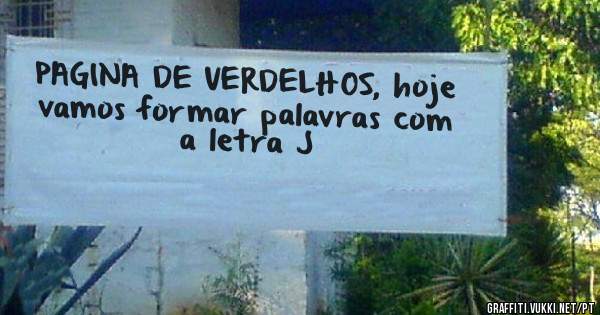 PAGINA DE VERDELHOS, hoje
vamos formar palavras com
a letra J
GRAFFITI.VUKKI.NET/PT